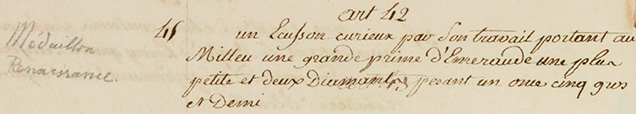 art 42
Médaillon
Renaissance
45
un Ecusson curieux par son travail portant au
Milieu une grande prime d'Emeraude une plus
petite et deux Diamants pesant un once cinq gros
et Demi